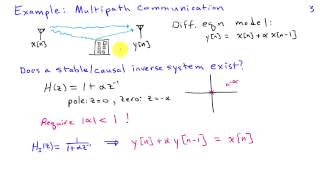 Example: Multipath Communication
3
Diff. eqn model:
y[n] = x[n] + α x[n-1]
x[n]
y[n]
Does a stable/causal inverse system exist?
H(z) = 1 + αz⁻¹
pole: z=0, zero: z=-α
Require |α| < 1 !
H_I(z) = 1/(1+αz⁻¹) ⇒ y[n] + α y[n-1] = x[n]